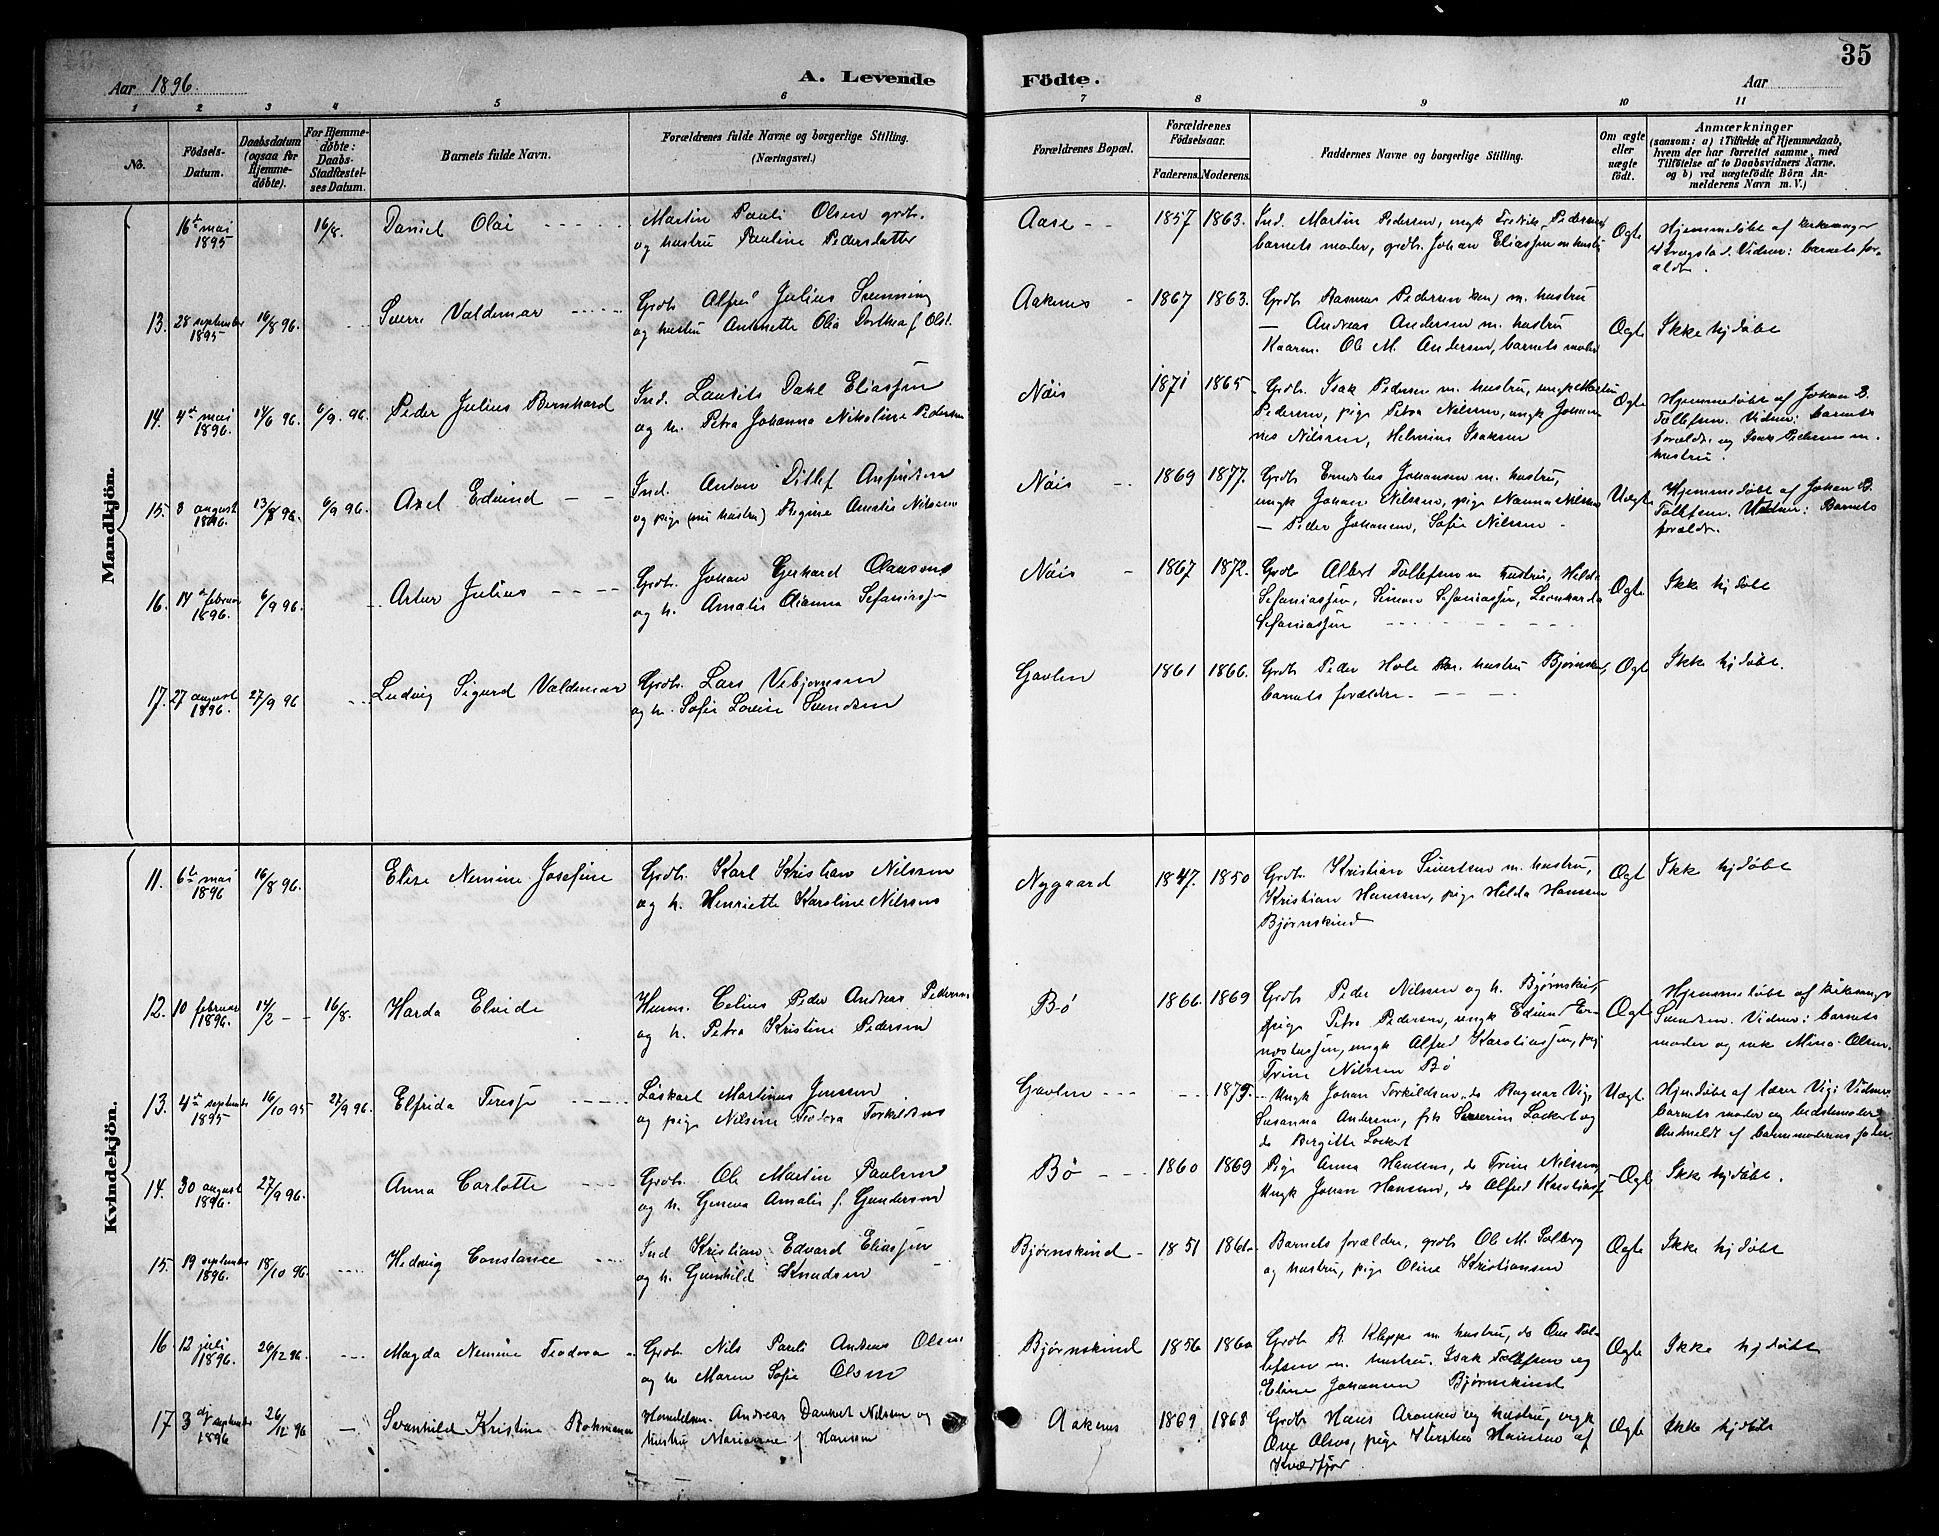 35
Aar 1896.
A. Levende
Födte.
Aar
1 2 3 4 5 6 7 8 9 10 11
No.
Födsels-
Datum.
Daabsdatum
(ogsaa for
Hjemme-
døbte).
For Hjemme-
døbte:
Daabs-
Stadfæstel-
ses Datum.
Barnets fulde Navn.
Forældrenes fulde Navne og borgerlige Stilling.
(Næringsvei.)
Forældrenes Bopæl.
Forældrenes
Födselsaar.
Faderens. Moderens.
Faddernes Navne og borgerlige Stilling.
Om ægte
eller
uægte
födt.
Anmærkninger
(saasom: a) i Tilfælde af Hjemmedaab,
hvem der har forrettet samme, med
Tilføielse af to Daabsvidners Navne.
og b) ved uægtefödte Börn An-
melderens Navn m. V.)
Mandkjön.
16de mai
1895
16/8.
Daniel Olai
Martin Pauli Olsen grdb.
og hustru Pauline Pedersdatter
Aase
1857 1863.
Ind. Martin Pedersen, ungk Fredrik Pedersen,
barnets moder, grdb. Johan Eliassen m hustru
Ægte
Hjemmedøbt af kirkesanger
Krogstad. Vidner: barnets for-
ældre.
13. 28 september
1895
16/8 96.
Sverre Valdemar
Grdb. Alfred Julius Svenning
og hustru Antonette Olia Dorthea f. Olsd.
Aakenes
1867 1863.
Grdb Rasmus Pedersen m. hustru
— Andreas Andersen m. hustru
Kaarm. Ole M. Andersen, barnets moder
Ægte
Ikke hjdøbt
14. 4de mai
1896.
14/6 96. 6/9. 96.
Peder Julius Bernhard
Ind. Laurits Dahl Eliassen
og h. Petra Johanna Nikoline Pedersen
Nöis
1871 1865
Grdb. Isak Pedersen m. hustru, ungk Martin
Pedersen, pige Petra Nilsen, ungk Johan-
nes Nilssen, Helmine Isaksen
Ægte
Hjemmedøbt af Johan B.
Tollefsen. Vidner: barnets
forældre og Isak Pedersen m.
hustru.
15. 8 august
1896.
13/8 96. 6/9 96.
Axel Edvind
Ind. Anton Ditlef Anfindsen
og pige (nu hustru) Regine Amalie Nilssen
Nöis
1869 1877.
Grdb. Johansen m. hustru,
ungk Johan Nilssen, pige Nanna Nilssen
— Peder Johansen, Sofie Nilssen
Uægte
Hjemmedøbt af Johan B.
Tollefsen. Vidner: Barnets
forældre.
16. 14de februar
1896.
6/9 96.
Artur Julius
Grdb. Johan Gerhard Olausens
og h. Amalie Dianna Sefaniassen
Nöis
1867 1872.
Grdb Albert Tollefsen m hustru, Hilda
Sefaniassen, Simon Sefaniassen, Leonharda
Sefaniassen
Ægte
Ikke hjdøbt
17. 27 august
1896.
27/9 96
Ludvig Sigurd Valdemar
Grdb. Lars Vebjørnsen
og h. Sofie Lovise Svendsen
Gavlen
1861 1866.
Grdb Peder Hole m. hustru Bjørnsk.,
barnets forældre.
Ægte
Ikke hjdøbt.
Kvindekjön.
11. 6te mai
1896
16/8 96.
Elise Nemine Josefine
Grdb. Karl Kristian Nilssen
og h. Henriette Karoline Nilssens
Nygaard
1847. 1850
Grdb. Kristian Sivertsen m. hustru,
Kristian Hanssen, pige Hilda Hanssen
Bjørnskind
Ægt
Ikke hjdøbt
12. 10 februar
1896.
14/2 16/8.
Harda Elvide
Husm. Celius Peder Andreas Pedersen
og h. Petra Kristine Pedersen
Bö
1866. 1869
Grdb Peder Nilssen og h. Bjørnskind,
pige Petra Pedersen, ungk Edvind Er-
nstussen, ungk Alfred Karoliussen, pige
Trine Nilssen Bö
Ægte
Hjemmedøbt af kirkesanger
Svendsen. Vidner: barnets
moder og enke Mina Olsen.
13. 4de september
1895
16/10 95 27/9 96.
Elfrida Terese
Löskarl Martinus Jenssen
og pige Nilsine Teodora Torkildsen
Gavlen
1875.
Ungk Johan Torkildsen, do Ragnar Vig,
Susanna Andersen, frk Severine Lockert og
do Bergitte Lockert
Uægt
Hjemdøbt af lærer Vig. Vidner
barnets moder og bedstemoder
Anmeldt af barnemoderens fader
14. 30 august
1896.
27/9 96.
Anna Carlotte
Grdb. Ole Martin Paulsen
og h. Geneva Amalie f. Gundersen
Bö
1860 1869
Pige Anna Hansens, do Trine Nilssen,
Ungk Johan Hansen, do Alfred Karoliuss
Ægte
Ikke hjdøbt.
15. 19 september
1896.
18/10 96.
Hedvig Constance
Ind Kristian Edvard Eliassen
og h. Gunhild Knudsen
Bjørnskind
1851 1861
Barnets forældre, grdb Ole M. Solberg
og hustru, pige Oline Kristiansen
Ægte
Ikke hjdøbt
16. 12 juli
1896.
26/12 96.
Magda Nemine Teodora
Grdb. Nils Pauli Andreas Olsen
og h Maren Sofie Olsen
Bjørnskind
1856 1860
Grdb R. Kleppe m hustru, do Ove Tol-
lefsen m. hustru. Isak Tollefsen og
Eline Johansen Bjørnskind
Ægte
Ikke hjdøbt
17 3 september
1896
26/12 96
Svanhild Kristine
Handelsm. Andreas Danket Nilssen og
hustru Marianne f Hanssen
Aakenes
1869 1868
Grdb Hans Aronsen og hustru, ungk
Ove Olsen, pige Kirstine Hansen af
Kvædfjor
Ægte
Ikke hjdøbt